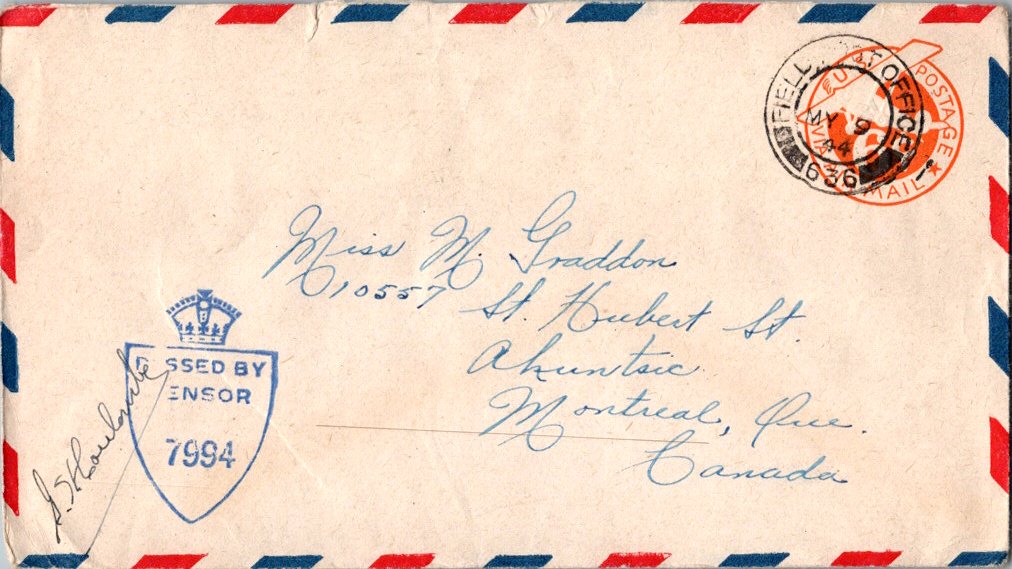 FIELD POST OFFICE
MY 9
44
636
U.S. POSTAGE
VIA AIR MAIL
Miss M. Graddon
10557 St. Hubert St.
Ahuntsic
Montreal, Que.
Canada
PASSED BY
CENSOR
7994